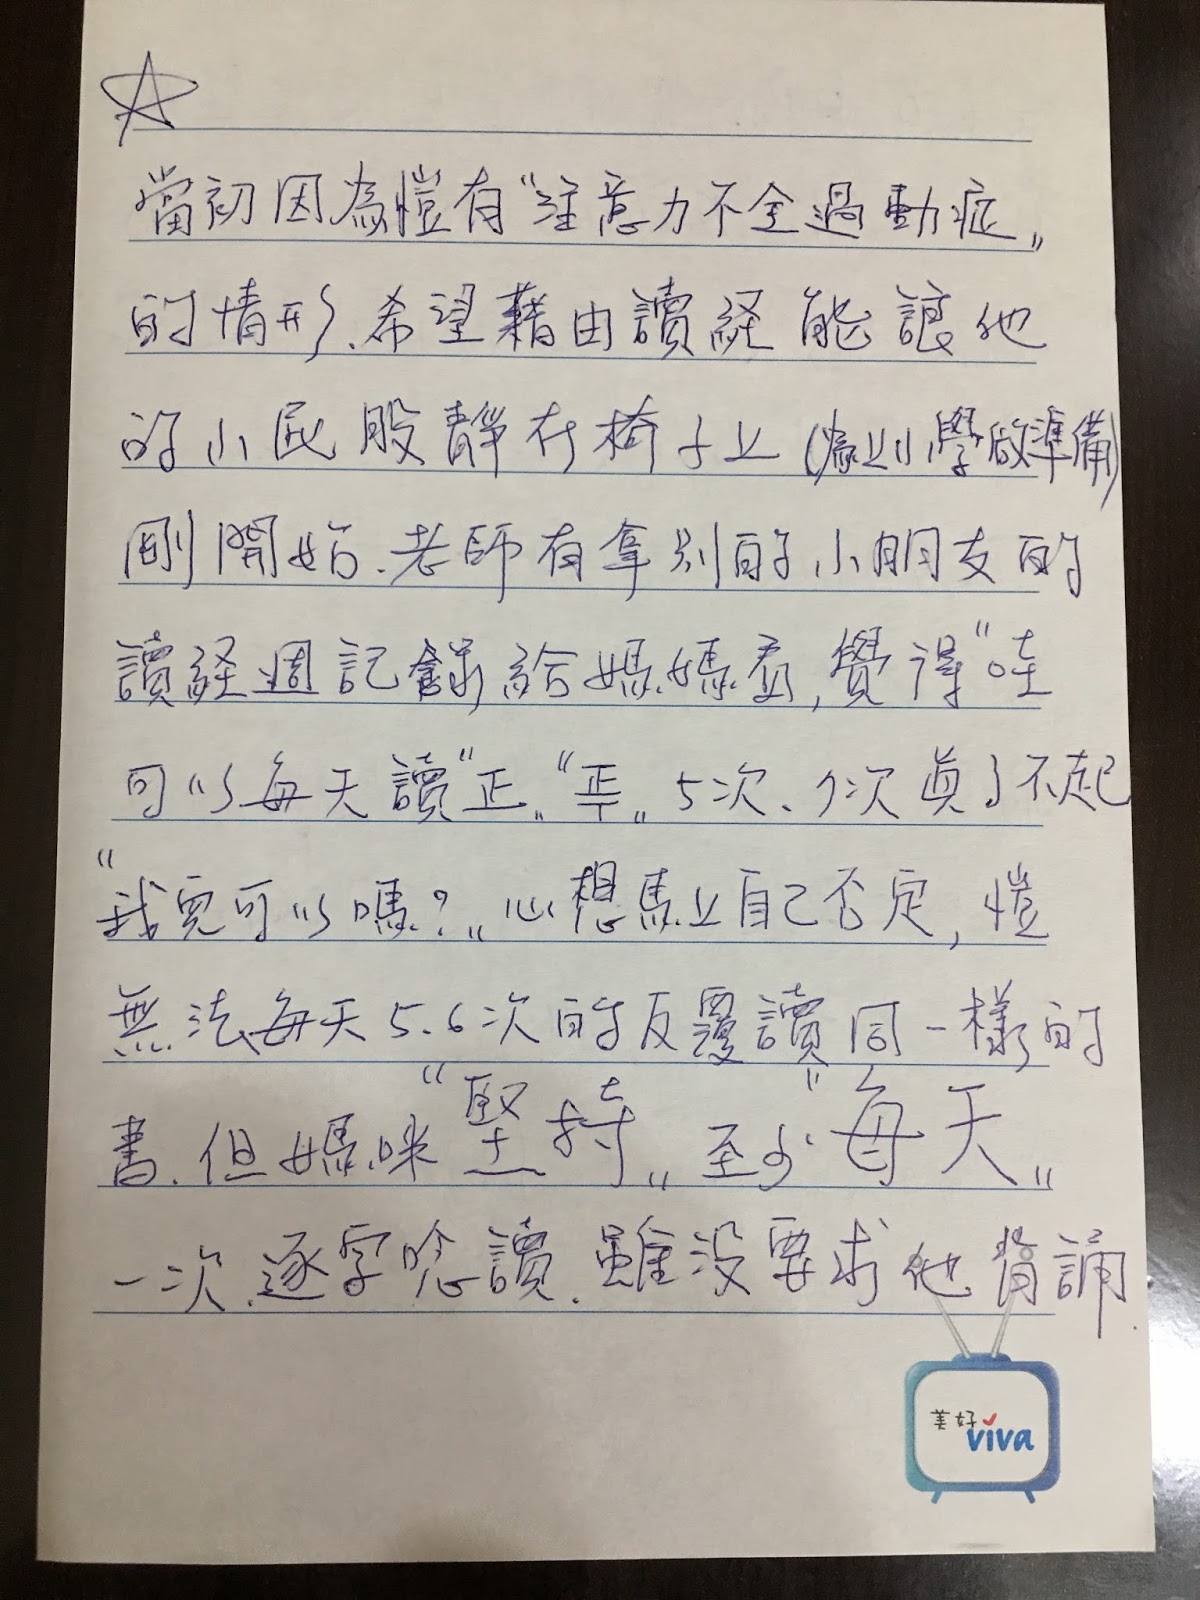 當初因為愷有“注意力不全過動症”
的情形、希望藉由讀経能讓他
的小屁股靜在椅子上(為上小學做準備)
剛開始、老師有拿別的小朋友的
讀経週記錄給媽媽看,覺得“哇
可以每天讀“正”“正”5次、7次真了不起
“我兒可以嗎?”心想馬上自己否定,愷
無法每天5、6次的反覆讀同一樣的
書、但媽咪“堅持”至少“每天”
一次、逐字唸讀、雖沒要求他背誦.
美好
viva